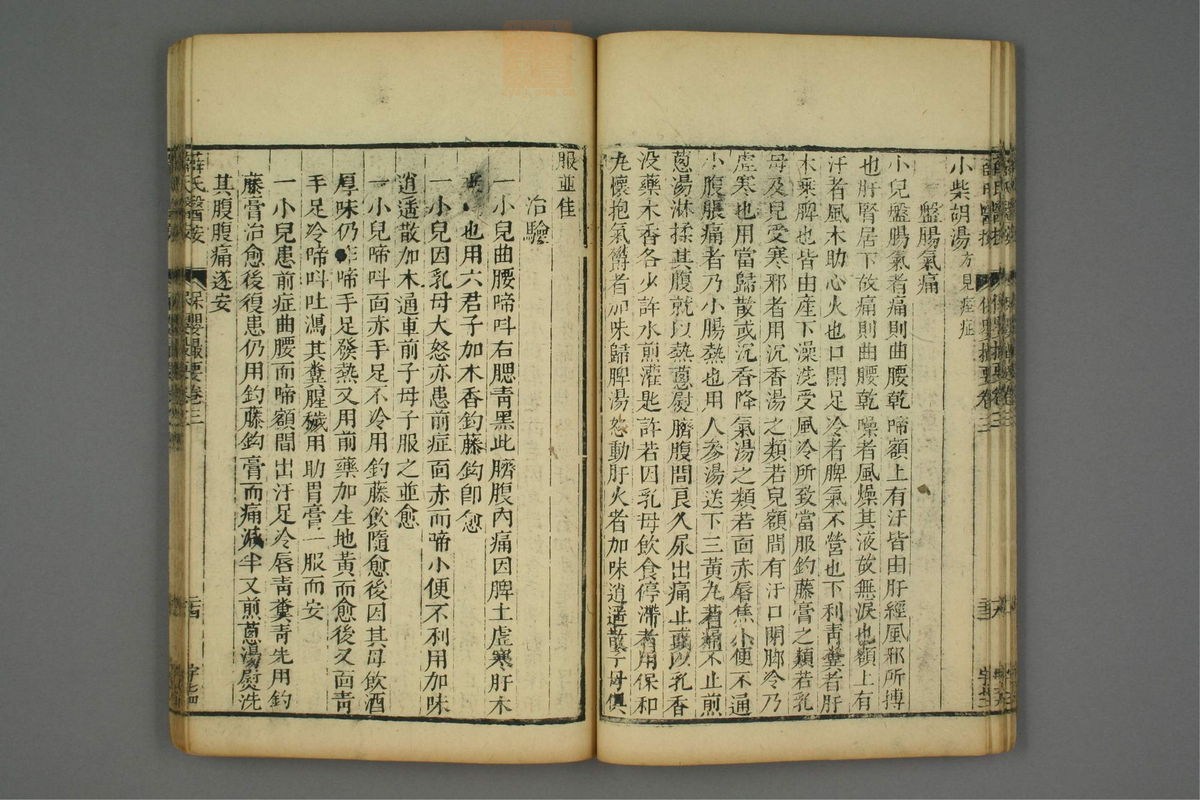 小柴胡湯方見痙症
盤腸氣痛
小兒盤腸氣者痛則曲腰乾啼額上有汗皆由肝經風邪所搏
也肝腎居下故痛則曲腰乾噪者風燥其液故無淚也額上有
汗者風木助心火也口閉足冷者脾氣不營也下利青糞者肝
木乘脾也皆由産下澡洗受風冷所致當服釣藤膏之類若乳
母及兒受寒邪者用沉香湯之類若兒額間有汗口閉脚冷乃
虚寒也用當歸散或沉香降氣湯之類若面赤唇焦小便不通
小腹脹痛者乃小腸熱也用人參湯送下三黃丸若痛不止煎
葱湯淋揉其腹就以熱葱熨臍腹間良久尿出痛止或以乳香
没藥木香各少許水煎灌匙許若因乳母飲食停滯者用保和
丸懷抱氣欝者加味歸脾湯怒動肝火者加味逍遥散子母俱
服並佳
治驗
一小兒曲腰啼呌右腮青黑此臍腹内痛因脾土虚寒肝木
也用六君子加木香釣藤鈎卽愈
一小兒因乳母大怒亦患前症面赤而啼小便不利用加味
逍遥散加木通車前子母子服之並愈
一小兒啼呌面赤手足不冷用釣藤飲隨愈後因其母飲酒
厚味仍啼手足發熱又用前藥加生地黃而愈後又面青
手足冷啼呌吐瀉其糞腥穢用助胃膏一服而安
一小兒患前症曲腰而啼額間出汗足冷唇青糞青先用釣
藤膏治愈後復患仍用釣藤鈎膏而痛减半又煎葱湯熨洗
其腹腹痛遂安
薛氏醫按
保嬰撮要卷三